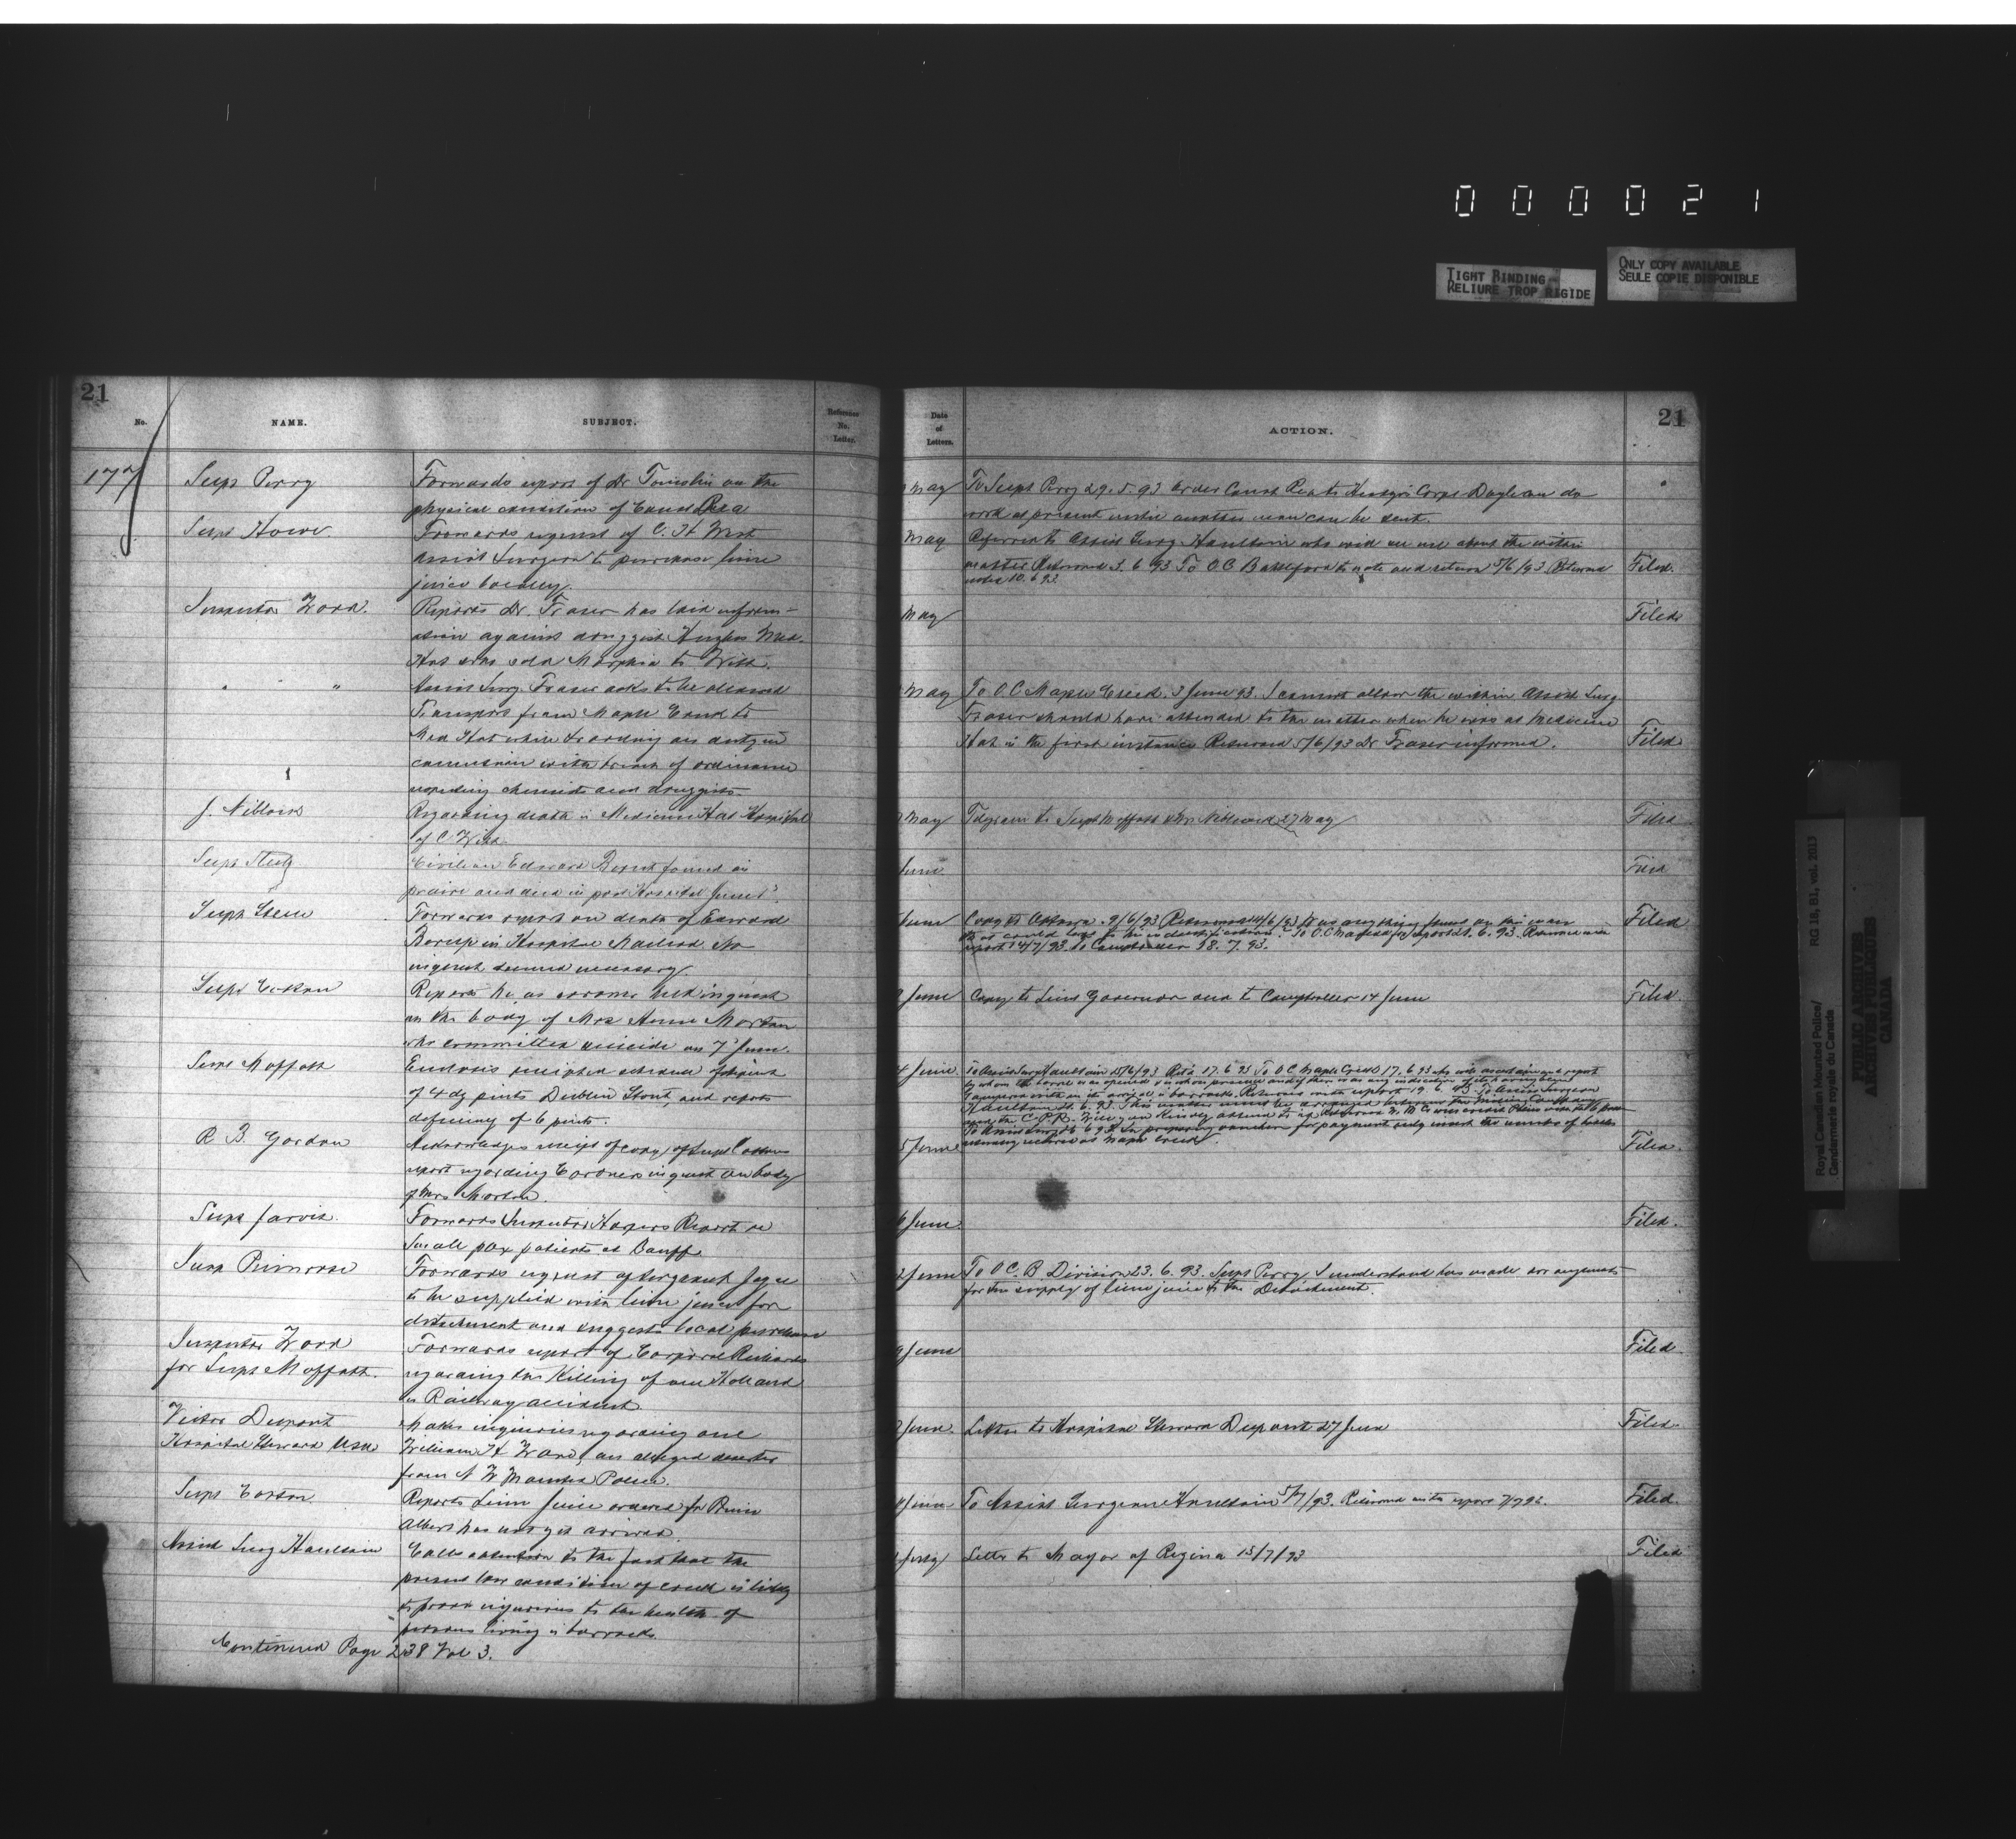 000021
TIGHT BINDING
RELIURE TROP RIGIDE
ONLY COPY AVAILABLE
SEULE COPIE DISPONIBLE
21
No.
NAME.
SUBJECT.
Reference
No.
Letter.
177
Supt Perry
Forwards report of Dr Tomolin on the
physical condition of Const Rea
Supt Howe
Forwards request of C. H West
Assist Surgeon to purchase lime
juice locally
Inspector Wood.
Reports Dr. Fraser has laid inform-
ation against druggist Hughes Med.
Hat who sold Morphia to Wish.
" "
Assist Surg. Fraser asks to be allowed
Transport from Maple Creek to
Med Hat where to on duty in
connection with breach of ordinance
regarding chemists and druggists
J. Niblock
Regarding death in Medicine Hat Hospital
of C Wish
Supt Steele
Civilian Edward found in
prairie and died in post Hospital June 1
Supt Steele
Forwards report on death of Edward
in Hospital Macleod. No
inquest deemed necessary
Supt Cotton
Reports he as coroner held inquest
on the body of Mrs Annie Morton
who committed suicide on 7th June.
Supt Moffatt
Encloses receipted schedule
of 4 dz pints Dublin Stout, and reports
deficiency of 6 pints.
R. B. Gordon
Acknowledges receipt of copy of Supt Cottons
report regarding Coroners inquest on body
of Mrs Morton.
Supt Jarvis.
Forwards Inspector Harpers Report re
Small pox patients at Banff
Supt Primrose
Forwards request of Sergeant
to be supplied with lime juice for
detachment and suggests local purchase
Inspector Wood
for Supt Moffatt.
Forwards report of Corporal Richards
regarding the Killing of one Holland
in Railway accident
Victor Dupont
Hospital Steward U.S.A
Makes inquiries regarding one
William H Ward, an alleged deserter
from N W Mounted Police.
Supt Cotton
Reports Lime Juice ordered for Prince
Albert has not yet arrived
Assist Surg Haultain
Calls attention to the fact that the
present low condition of creek is likely
to prove injurious to the health of
persons living in barracks.
Continued Page 238 Vol 3.
Date
of
Letters.
ACTION.
21
May
To Supt Perry 29.5.93 Order Const Rea to Corpl do
work at present until another man can be sent.
May
Referred to Assist Surg Haultain who will see me about the within
matter Returned 3.6.93 To O C Battleford to note and return 5/6/93 Returned
noted 10.6.93
Filed.
May
Filed
May
To O C Maple Creek. 3 June 93. I cannot allow the within Assist Surg
Fraser should have attended to the matter when he was at Medicine
Hat in the first instance Returned 5/6/93 Dr Fraser informed.
Filed
May
Telegram to Supt Moffatt & Mr Niblock 27 May
Filed
June
Filed
June
Copy to Ottawa. 9/6/93 Returned 14/6/93 Was anything found on this man
that could lead to his identification? To O.C Macleod for report 21.6.93. Returned with
report 14/7/93 to Comptroller 18.7.93.
Filed
June
Copy to Lieut Governor and to Comptroller 14 June
Filed.
June
To Assist Surg Haultain 15/6/93 Retd 17.6.93 To O C Maple Creek 17.6.93 who will ascertain and report
by whom the barrel was opened & in whose presence and if there was any indication of its having been
tampered with on its arrival in barracks. Returned with report 19.6.93. To Assist Surgeon
Haultain 21.6.93. This matter must be arranged between the Medicine Company
and the C.P.R. Will you Kindly attend to it.
for payment only
5 June
Filed.
June
Filed.
June
To O.C. B Division 23.6.93. Supt Perry I understand has made arrangements
for the supply of lime juice to the Detachment.
June
Filed.
June
Letter to Hospital Steward Dupont 27 June
Filed.
June
To Assist Surgeon Haultain 5/7/93. Returned with report 7/7/93.
Filed.
July
Letter to Mayor of Regina 15/7/93
Filed
Royal Canadian Mounted Police/
Gendarmerie royale du Canada
RG 18, B1, vol. 2013
PUBLIC ARCHIVES
ARCHIVES PUBLIQUES
CANADA